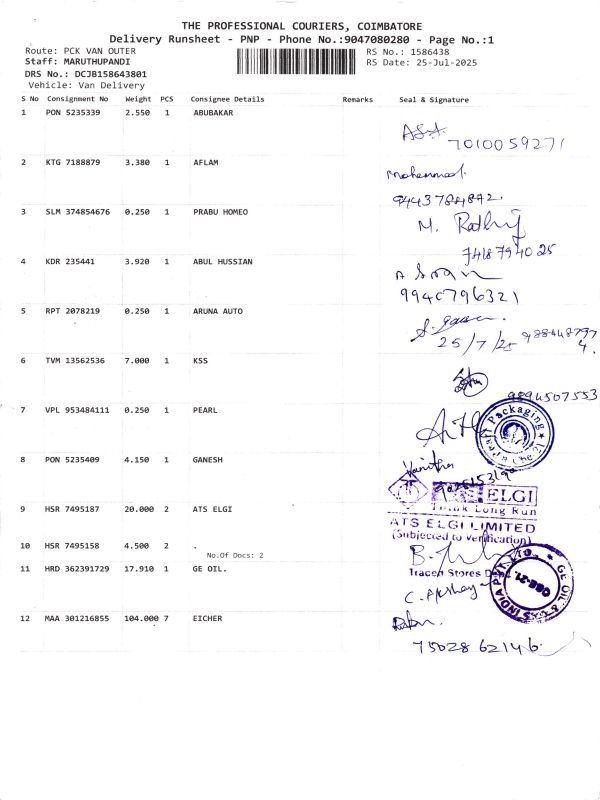 THE PROFESSIONAL COURIERS, COIMBATORE
Delivery Runsheet - PNP - Phone No.:9047080280 - Page No.:1
Route: PCK VAN OUTER
RS No.: 1586438
Staff: MARUTHUPANDI
RS Date: 25-Jul-2025
DRS No.: DCJB158643801
Vehicle: Van Delivery
S No Consignment No Weight PCS Consignee Details Remarks Seal & Signature
1 PON 5235339 2.550 1 ABUBAKAR
7010059271
2 KTG 7188879 3.380 1 AFLAM
Mohammed.
9443784842.
3 SLM 374854676 0.250 1 PRABU HOMEO
M.
7418794025
4 KDR 235441 3.920 1 ABUL HUSSIAN
9940796321
5 RPT 2078219 0.250 1 ARUNA AUTO
25/7/25
6 TVM 13562536 7.000 1 KSS
9894507553
7 VPL 953484111 0.250 1 PEARL
Pearl Packaging
8 PON 5235409 4.150 1 GANESH
9 HSR 7495187 20.000 2 ATS ELGI
ELGI
Think Long Run
ATS ELGI LIMITED
(Subjected to Verification)
10 HSR 7495158 4.500 2 .
No.Of Docs: 2
Stores
11 HRD 362391729 17.910 1 GE OIL.
GE OIL & GAS INDIA PVT. LTD.
CBE-21.
C. Akshay
12 MAA 301216855 104.000 7 EICHER
7502862146